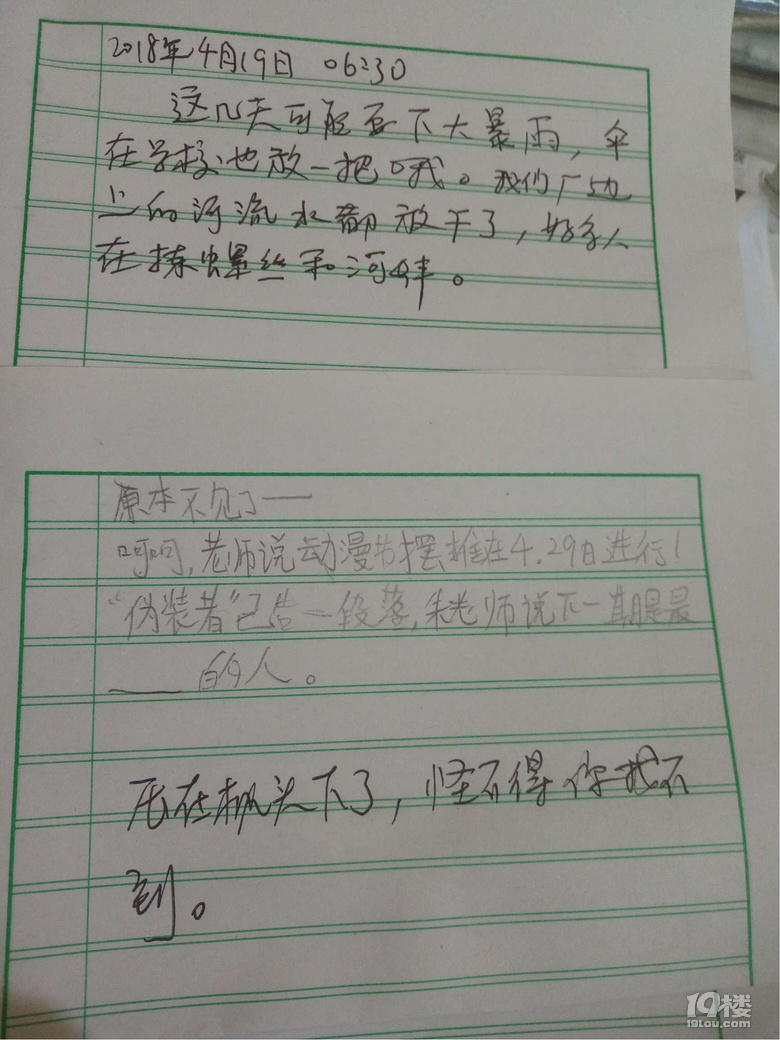 2018年4月19日 06:30
这几天可能要下大暴雨，伞
在学校也放一把哦。我们厂边
上的河流水都放干了，好多人
在拣螺丝和河蚌。
原本不见了——
呵呵，老师说动漫节摆摊在4.29日进行！
“伪装者”已告一段落，朱老师说下一期是最
____的人。
压在枕头下了，怪不得你找不
到。
19楼
19lou.com